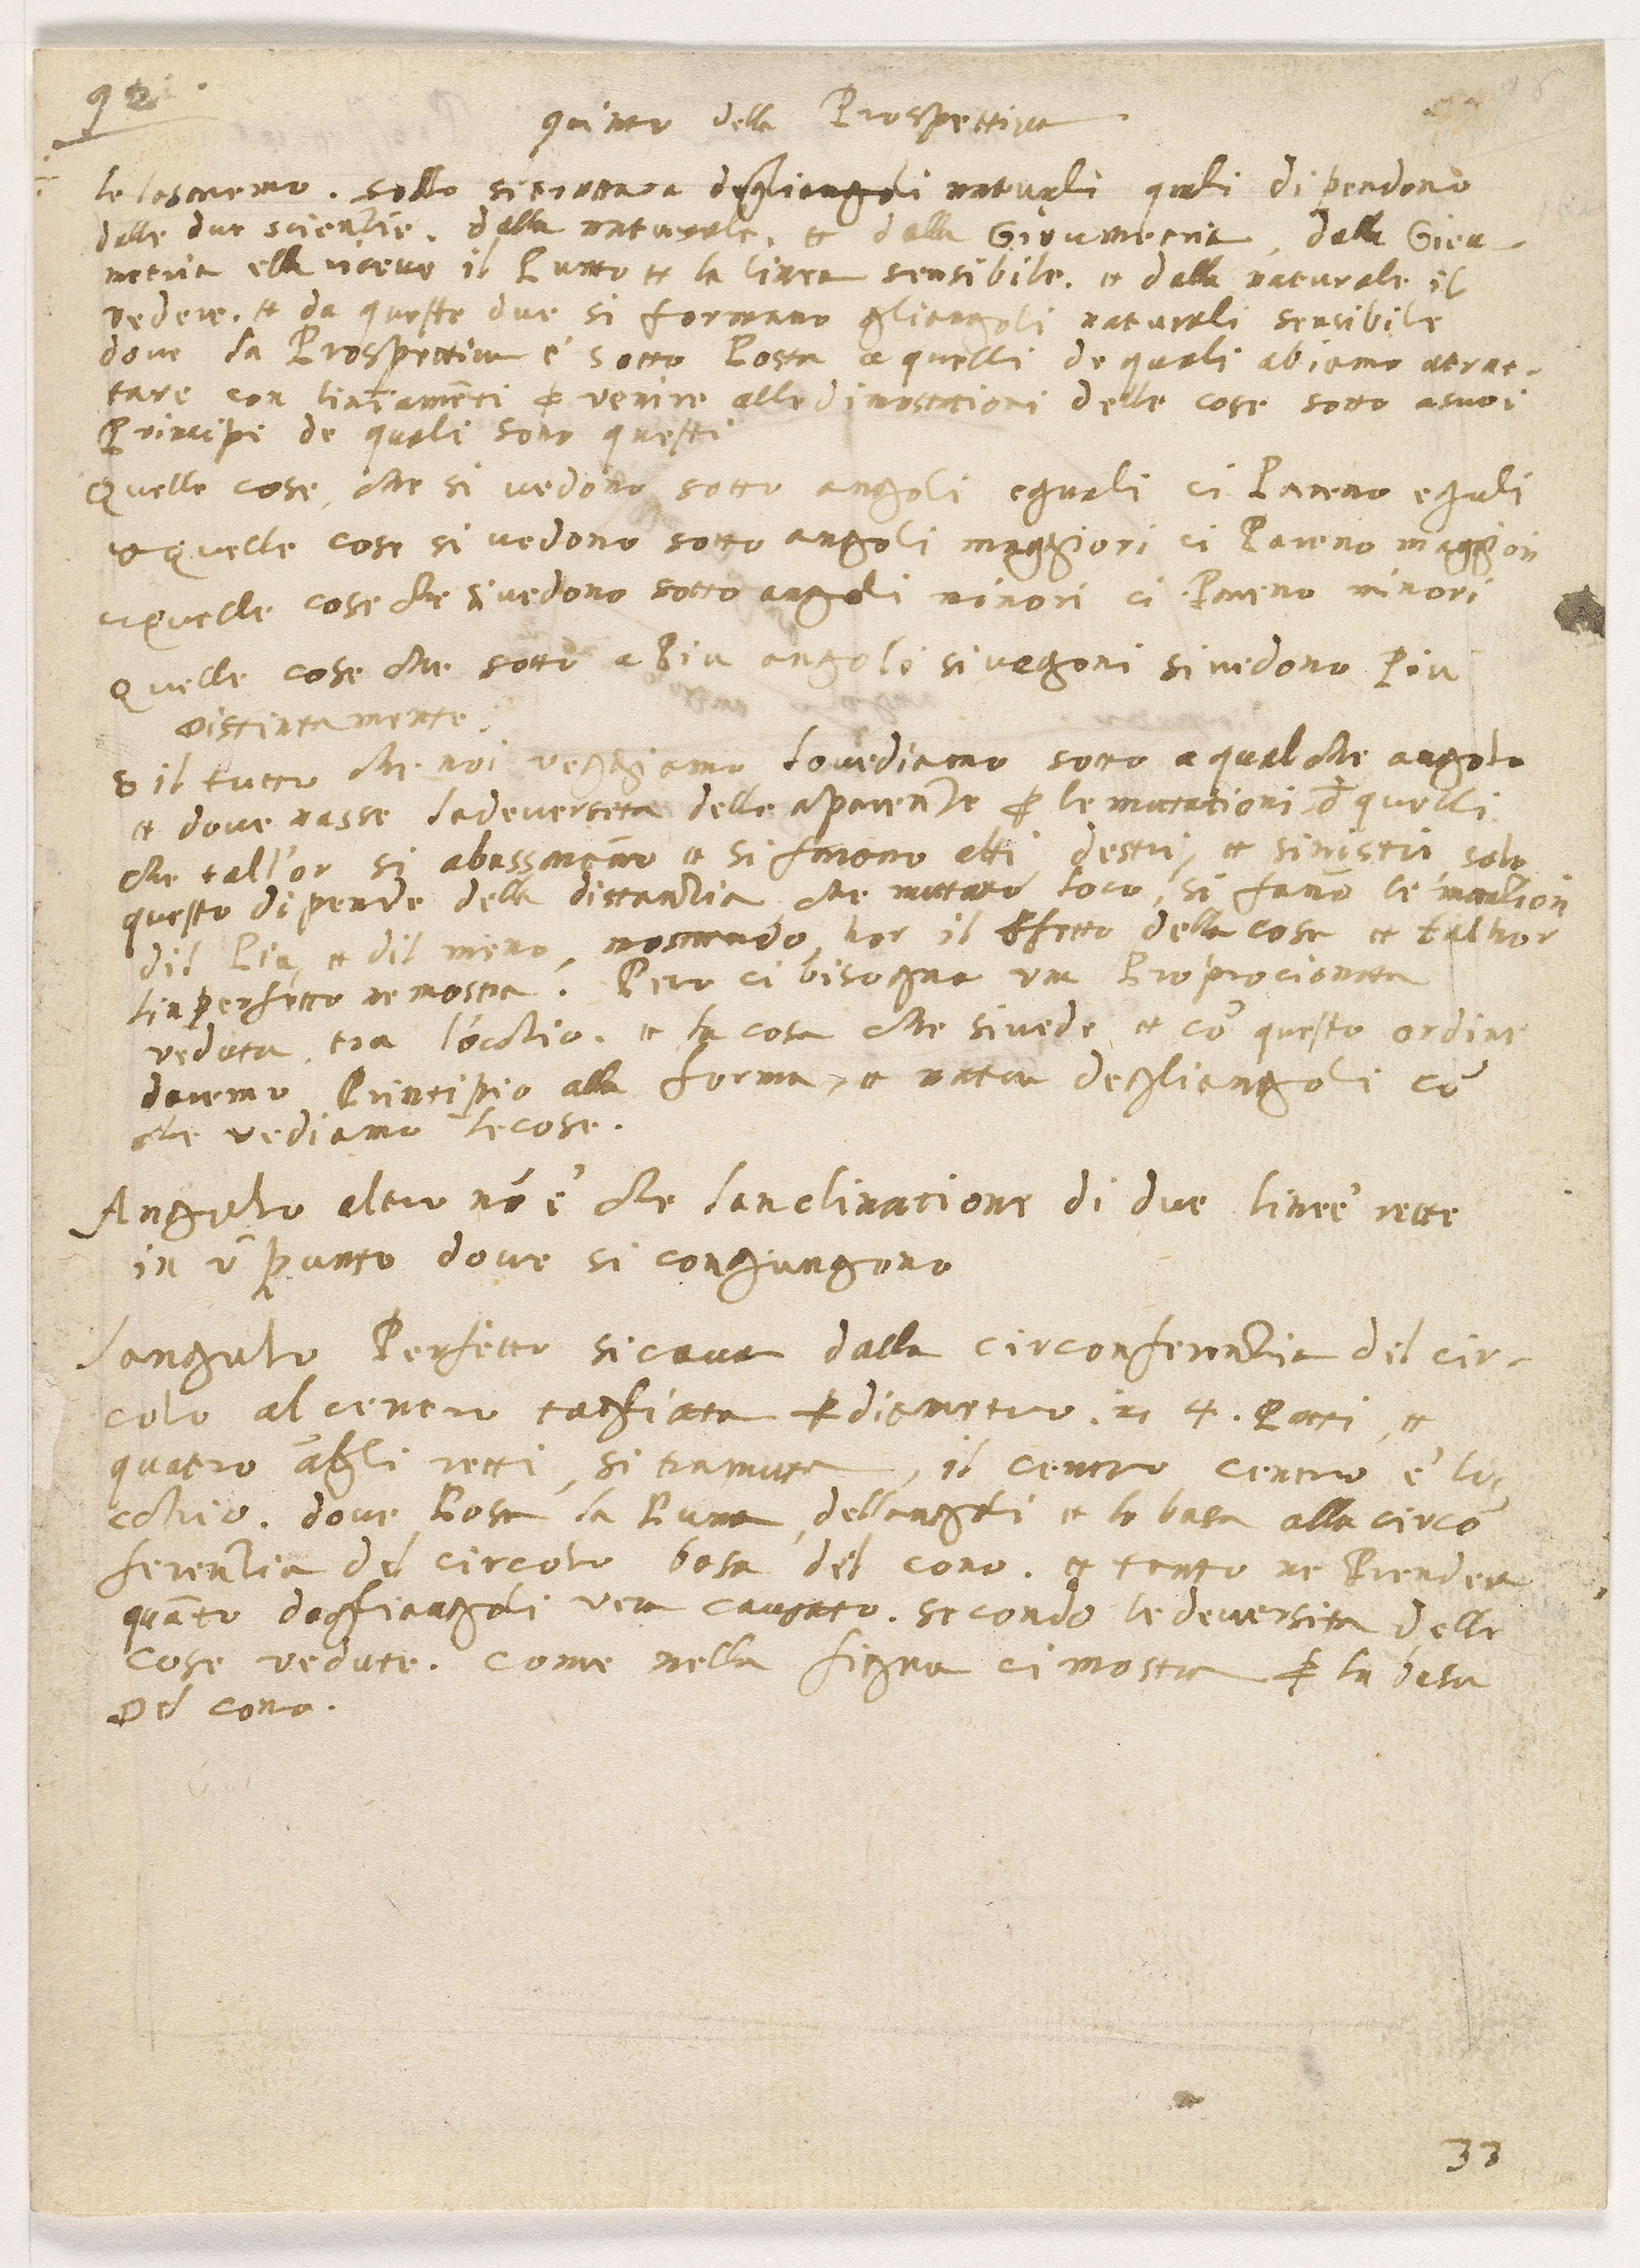 92
quinto della Prospettiva
le lasciaremo. sollo si trattara degliangoli naturali quali dipendono
dalle due scientie. dalla naturale. et dalla Gieumetria, dalla Gieu-
metria ella riceve il Punto et la linea sensibile. et dalla naturale il
vedere. et da queste due si formano gliangoli naturali sensibile
dove la Prospettiva é sotto Posta a quelli de quali abiamo atrat-
tare con liniamēti p venire alle dimostrationi delle cose sotto asuoi
Principi de quali sono questi
Quelle cose, che si vedono sotto angoli eguali ci Pareno eguli
et quelle cose si vedono sotto angoli maggiori ci Pareno maggiori
et quelle cose che si vedono sotto angoli minori ci Pareno minori
Quelle cose che sotto a Piu angoli si vegoni si vedono Piu
Distintamente.
& il tutto che noi veggiamo lo vediamo sotto a qualche angolo
et dove nasse ladeverseta delle aparentie p le mutationi d quelli
che tall'or si abassano et si fanono alti, destri, et sinistri, solo
questo dipende della distantia che mutato loco, si fano le mutationi
dil Piu, et dil meno, mostrando, hor il Effetto della cosa et talhor
linperfetto ne mostra. Pero ci bisogna una Proprocionata
veduta, tra l'occhio. et la cosa che si vede et cō questo ordine
daremo Principio alla forma, et natura degliangoli cō
che vediamo le cose.
Angulo altro nō é che lanclinatione di due lineé rette
in ū punto dove si congiungono
Langulo Perfetto si cava dalla circonferentia del cir-
colo al centro tagliata p diametro. in 4. Parti, et
quatro āgli retti, si tramuta, il centro centro é lo
cchio. dove Posa la Punta, dellangoli et la basa alla circō
ferentia del circolo basa del cono. et tanto ne Prendera
quāto dagliangoli vera causato. secondo le deversita delle
cose vedute. come nella figura ci mostra p la basa
Del cono.
33